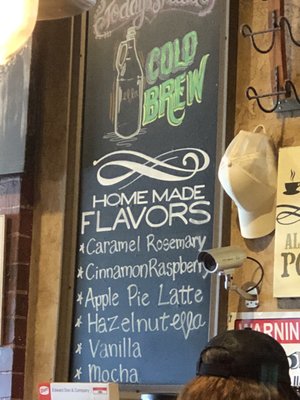 COLD
BREW
HOME MADE
FLAVORS
* Caramel Rosemary
* Cinnamon Raspberry
* Apple Pie Latte
* Hazelnutella
* Vanilla
* Mocha
WARNING